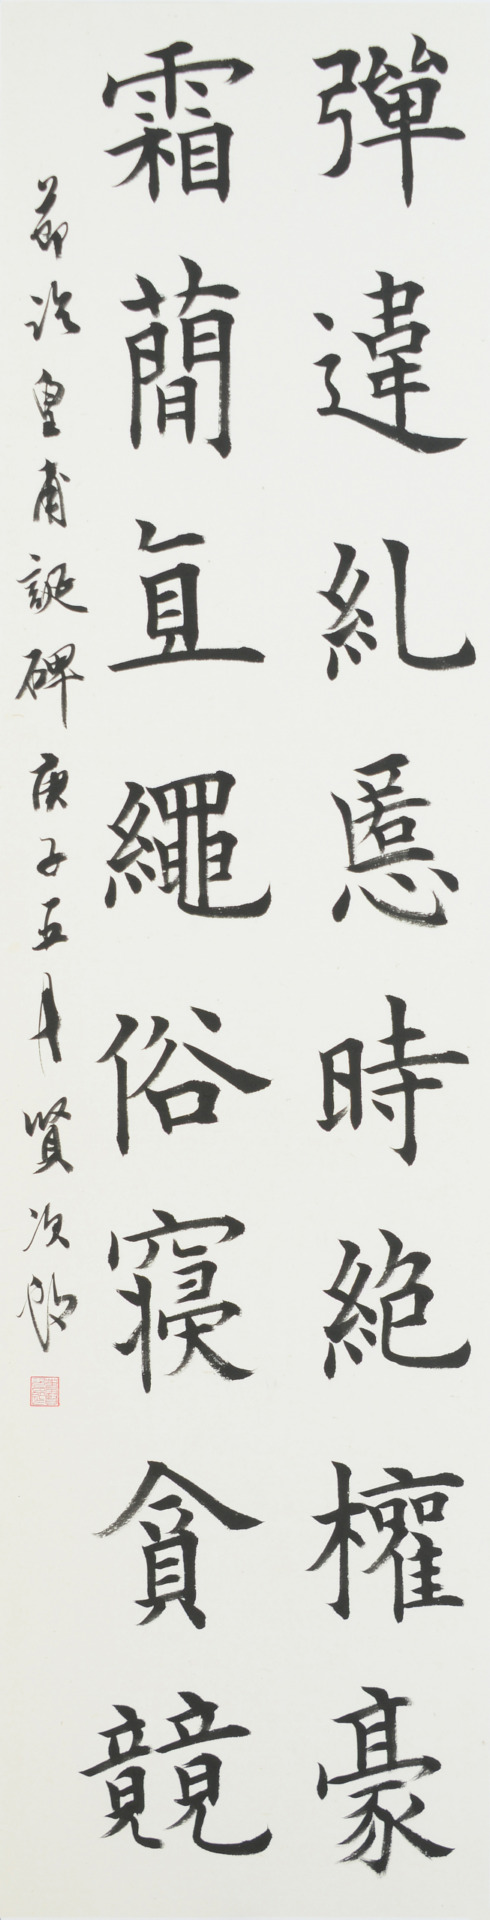 彈違糺慝時絕權豪
霜簡直繩俗寢貪競
節臨皇甫誕碑庚子五月賢次